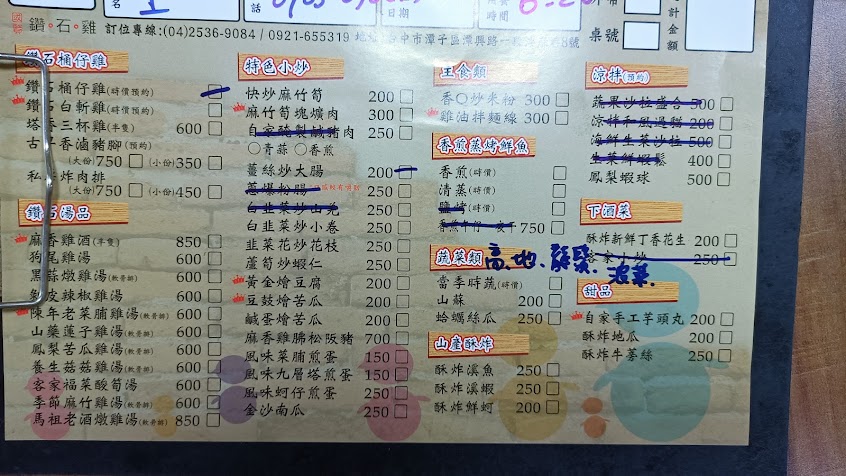 名
話
日期
時間
桌號
計金額
國際 鑽·石·雞 訂位專線:(04)2536-9084 / 0921-655319 地址:台中市潭子區潭興路一段
8號
鑽石桶仔雞
鑽石桶仔雞(時價預約)
鑽石白斬雞(時價預約)
塔香三杯雞(半隻) 600
古早香滷豬腳(預約)
(大份)750 (小份)350
私 炸肉排
(大份)750 (小份)450
鑽石湯品
麻香雞酒(半隻) 850
狗尾雞湯 600
黑蒜燉雞湯(軟骨排) 600
剝皮辣椒雞湯 600
陳年老菜脯雞湯(軟骨排) 600
山藥蓮子雞湯(軟骨排) 600
鳳梨苦瓜雞湯(軟骨排) 600
養生菇菇雞湯(軟骨排) 600
客家福菜酸筍湯 600
季節麻竹雞湯(軟骨排) 600
馬祖老酒燉雞湯(軟骨排) 850
特色小炒
快炒麻竹筍 200
麻竹筍塊爌肉 300
自家醃製鹹豬肉 250
○青蒜 ○香煎
薑絲炒大腸 200
蔥爆粉腸 250
白韭菜炒山羌 250
白韭菜炒小卷 250
韭菜花炒花枝 250
蘆筍炒蝦仁 250
黃金燴豆腐 200
豆鼓燴苦瓜 200
鹹蛋燴苦瓜 200
麻香雞胇松阪豬 700
風味菜脯煎蛋 150
風味九層塔煎蛋 150
風味蚵仔煎蛋 250
金沙南瓜 250
主食類
香○炒米粉 300
雞油拌麵線 300
香煎蒸烤鮮魚
香煎(時價)
清蒸(時價)
鹽烤(時價)
750
蔬菜類 高、地、髮菜、菠菜
當季時蔬(時價)
山蘇 200
蛤蠣絲瓜 250
山產酥炸
酥炸溪魚 250
酥炸溪蝦 250
酥炸鮮蚵 200
涼拌(預約)
蔬果沙拉盛合 500
涼拌和風過貓 200
海鮮生菜沙拉 500
生菜鮮蝦鬆 400
鳳梨蝦球 500
下酒菜
酥炸新鮮丁香花生 200
客家小炒 250
甜品
自家手工芋頭丸 200
酥炸地瓜 200
酥炸牛蒡絲 250